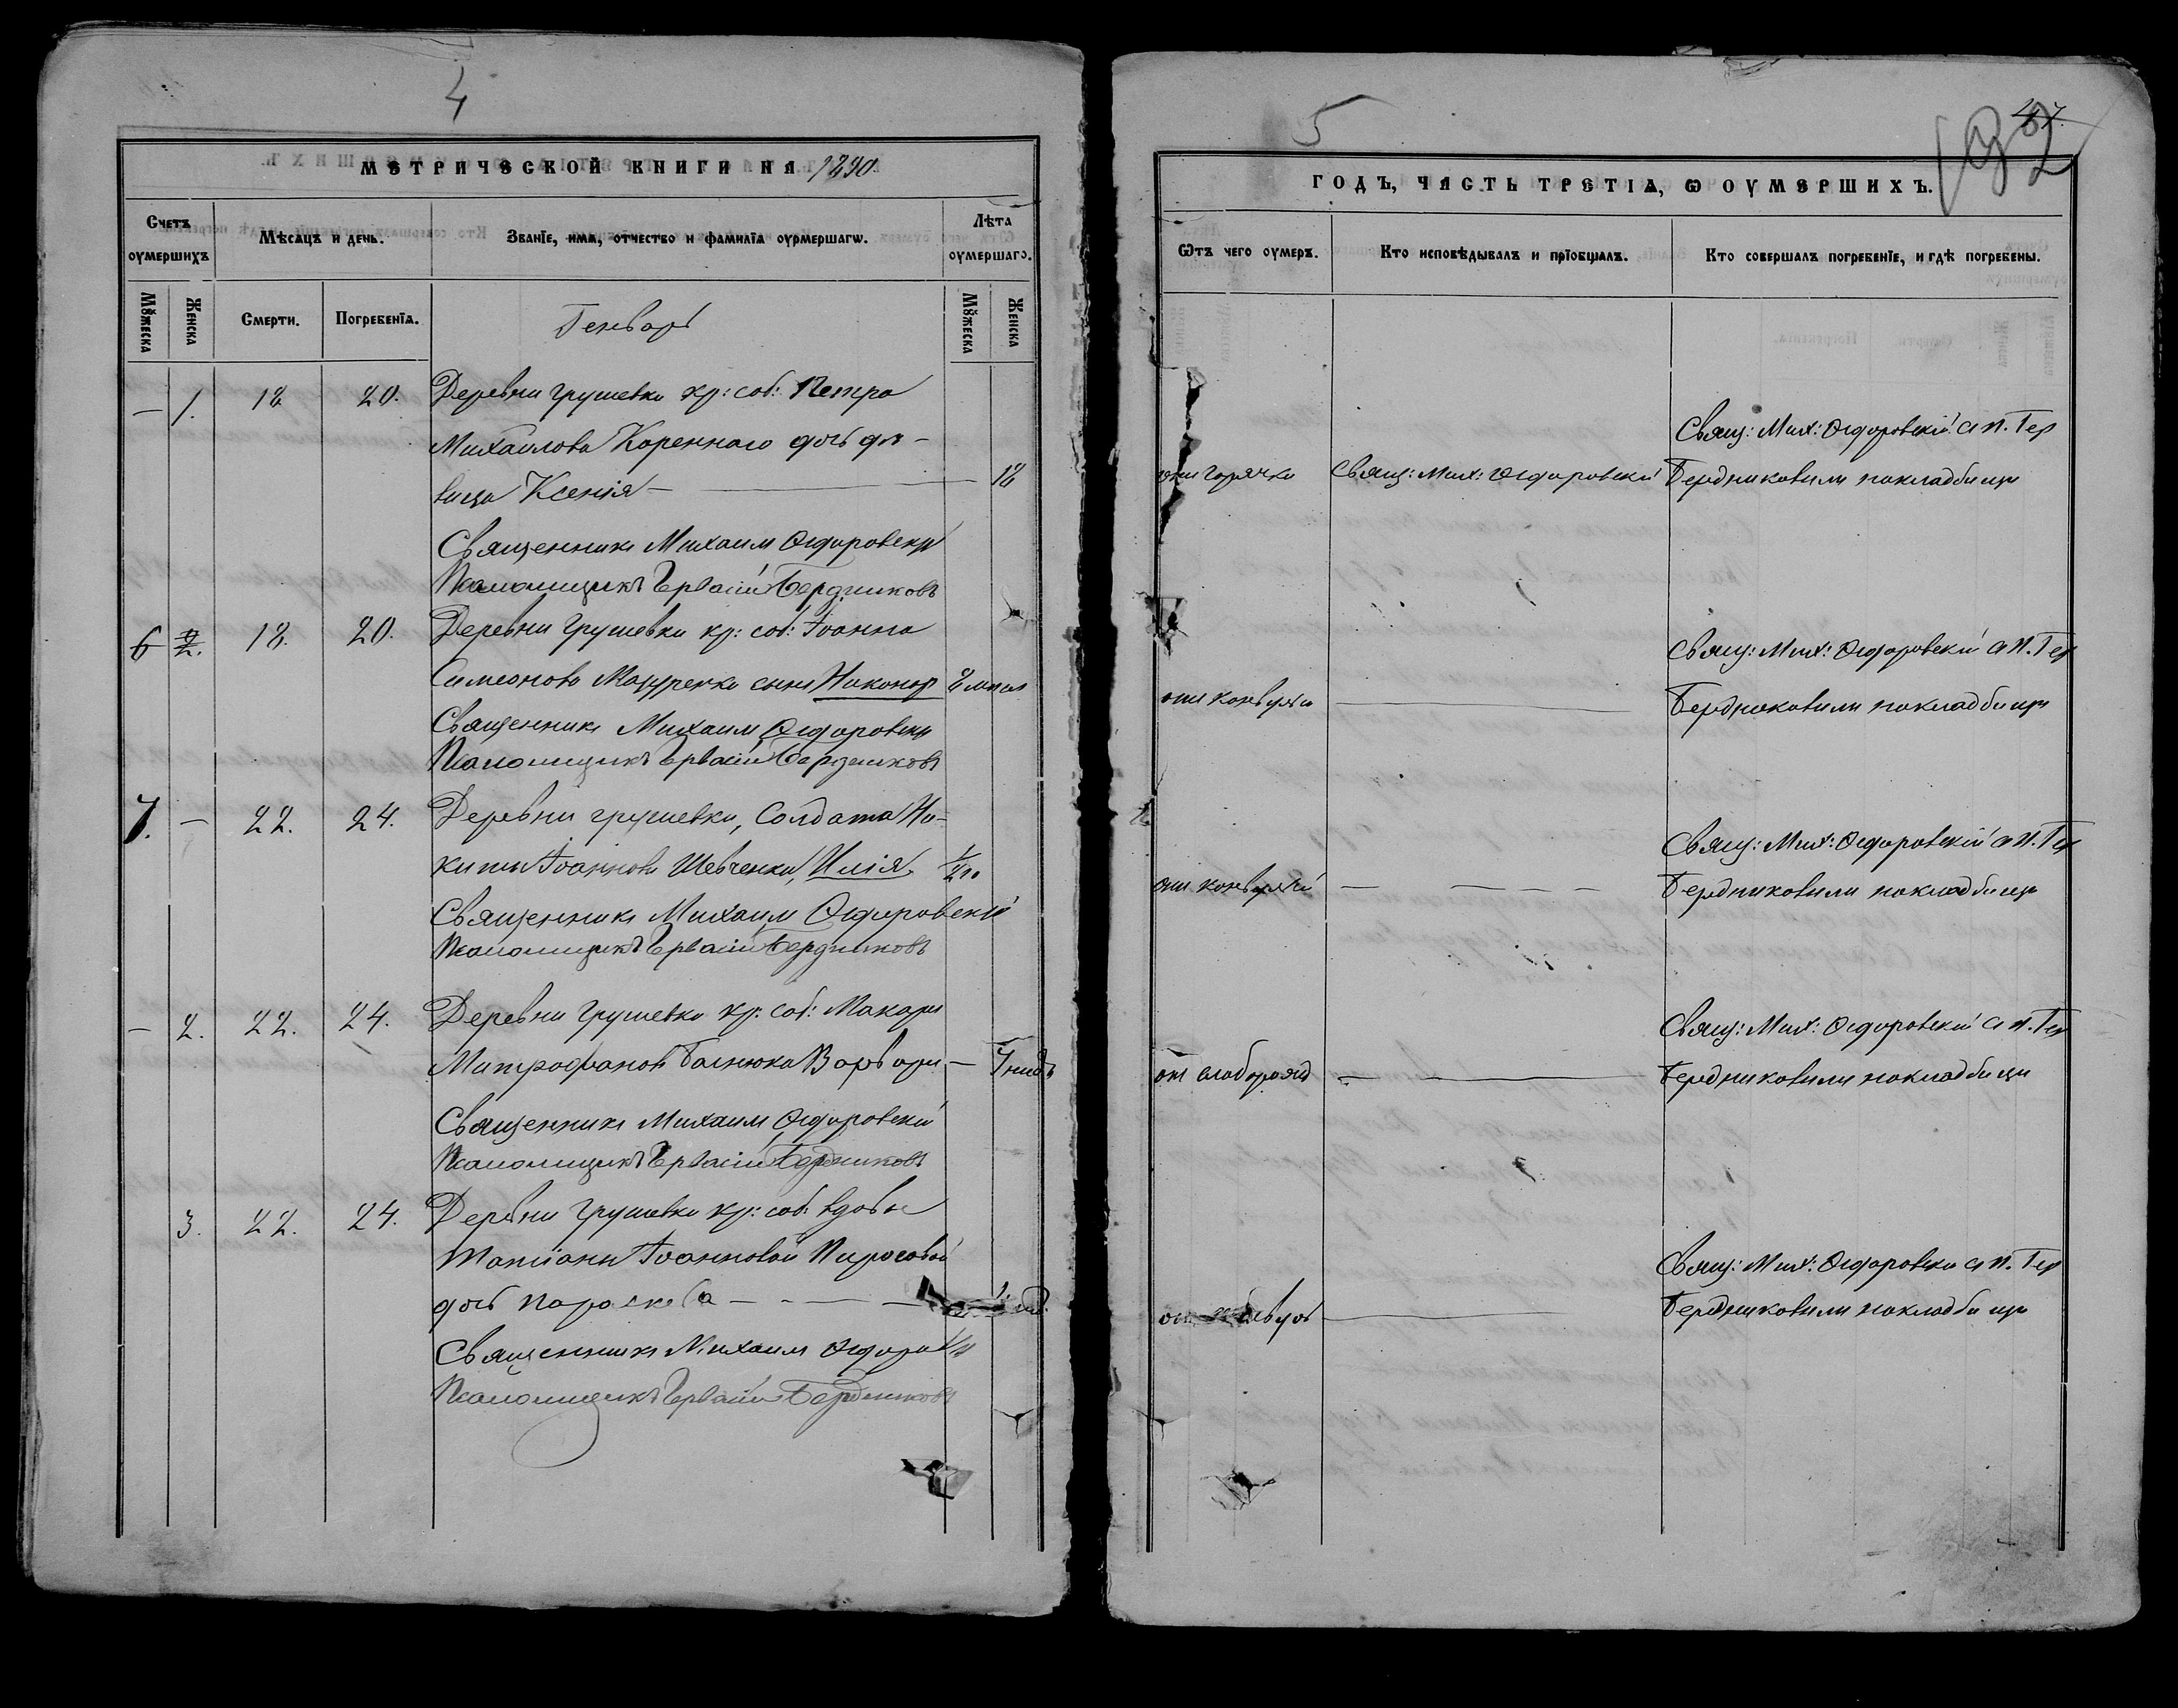 4
МЕТРИЧЕСКОЙ КНИГИ НА 1890.
Счетъ оумершихъ
Мѣсяцъ и день.
Званїе, имя, отчество и фамилїа оурмершагѡ.
Лѣта оумершаго.
Мꙋжеска
Женска
Смерти.
Погребенїя.
Генварь
Мꙋжеска
Женска
— 1. 18 20. Деревни Грушевки кр: соб: Петра
Михаилова Кореннаго дочь дѣ-
вица Ксенія — 18
Священникъ Михаилъ Ѳедоровскій
Псаломщикъ Герасій Бердниковъ
6 2. 18. 20. Деревни Грушевки кр: соб: Іоанна
Симеонова Мазуренка сынъ Никаноръ
Священникъ Михаилъ Ѳедоровскій
Псаломщикъ Герасій Бердниковъ
7. — 22. 24. Деревни Грушевки, Солдата Ни-
киты Іоаннова Шевченка, Илія
Священникъ Михаилъ Ѳедоровскій
Псаломщикъ Герасій Бердниковъ
— 2. 22. 24. Деревни Грушевки кр: соб: Макарія
Митрофанова Варвара —
Священникъ Михаилъ Ѳедоровскій
Псаломщикъ Герасій Бердниковъ
3. 22. 24. Деревни Грушевки кр: соб: вдовы
Татіаны Іоанновой
дочь Параскева —
Священникъ Михаилъ Ѳедоровскій
Псаломщикъ Герасій Бердниковъ
5
47.
ГОДЪ, ЧАСТЬ ТРЕТІА, Ѡ ОУМЕРШИХЪ.
Ѿтъ чего оумеръ.
Кто исповѣдывалъ и прїобщалъ.
Кто совершалъ погребенїе, и гдѣ погребены.
Свящ: Мих: Ѳедоровскій съ п. Гер
горячки Свящ: Мих: Ѳедоровскій Бердниковымъ на кладбищѣ
Свящ: Мих: Ѳедоровскій съ п. Гер
отъ — Бердниковымъ на кладбищѣ
Свящ: Мих: Ѳедоровскій съ п. Гер
отъ — Бердниковымъ на кладбищѣ
Свящ: Мих: Ѳедоровскій съ п. Гер
отъ — Бердниковымъ на кладбищѣ
Свящ: Мих: Ѳедоровскій съ п. Гер
отъ — Бердниковымъ на кладбищѣ